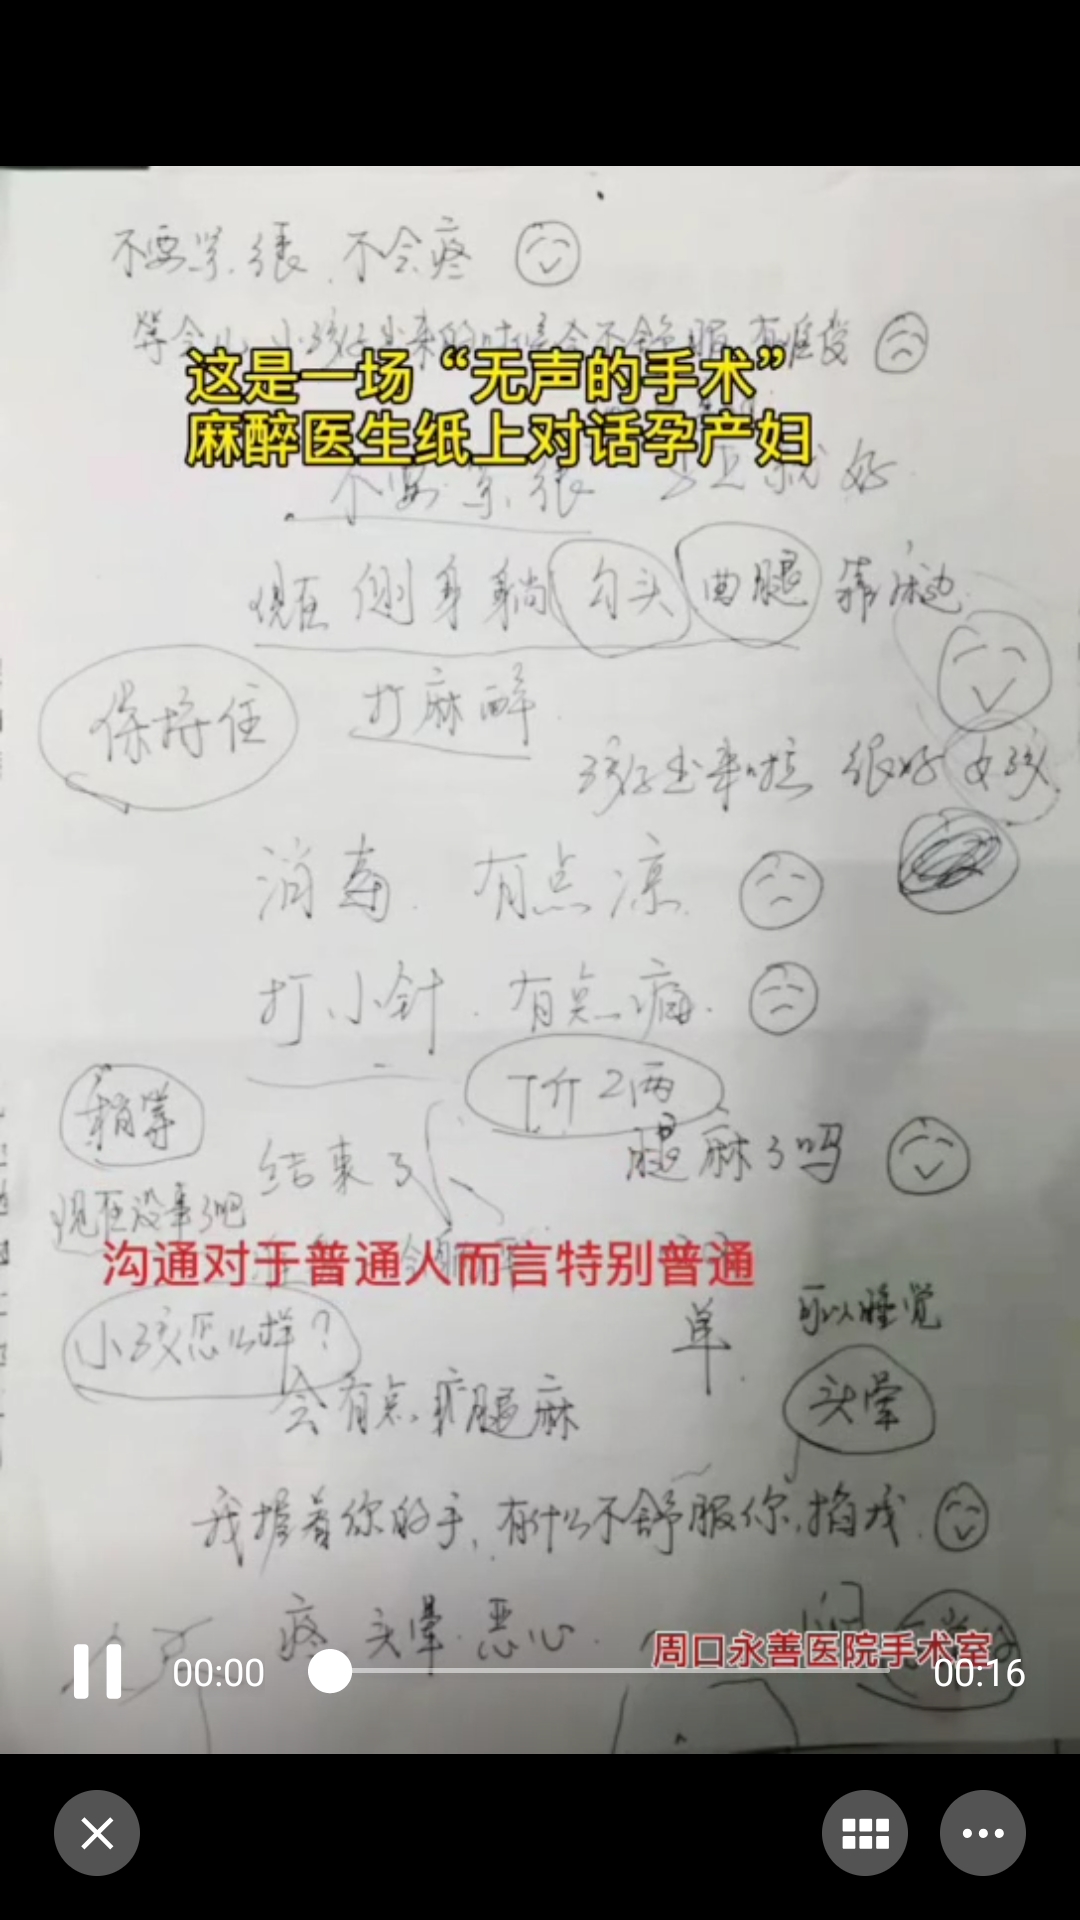 不要紧张 不会疼
等会儿 小孩子出来的时候会不舒服 有难受
这是一场“无声的手术”
麻醉医生纸上对话孕产妇
不要紧张 就好
现在侧身躺 勾头 曲腿 靠床边
保持住 打麻醉
孩子出来啦 很好 女孩
消毒 有点凉
打小针 有点痛
稍等
结束了
腿麻了吗
现在没事了吧
沟通对于普通人而言特别普通
小孩怎么样?
可以睡觉
会有点 腿麻
头晕
我握着你的手,有什么不舒服你掐我
疼 头晕 恶心
周口永善医院手术室
00:00
00:16